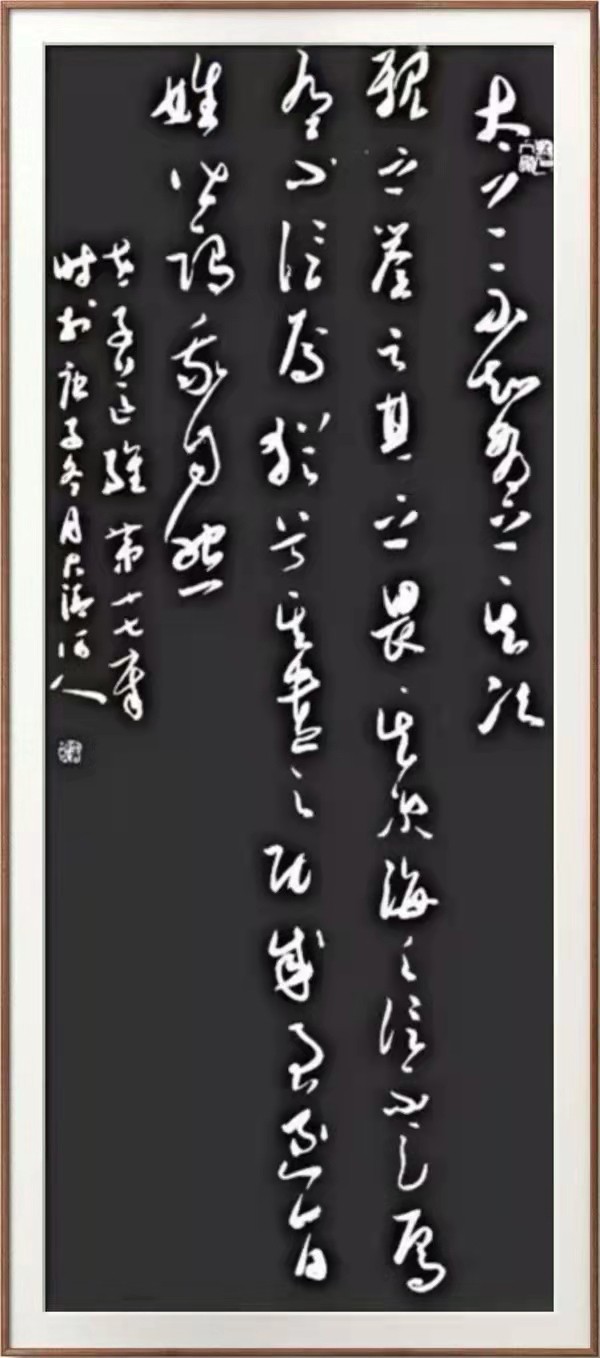 太上不知有之其次
親之譽之其次畏其次侮之信不足焉
有不信焉猶兮其貴言功成事遂百
姓皆謂我自然
老子道經第十七章
時於庚子冬月大清河人